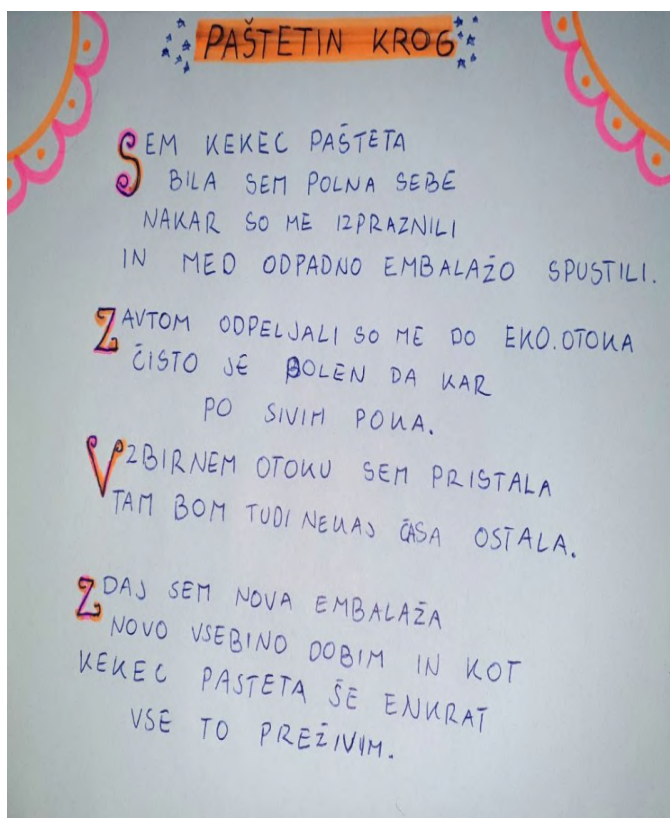 PAŠTETIN KROG
SEM KEKEC PAŠTETA
BILA SEM POLNA SEBE
NAKAR SO ME IZPRAZNILI
IN MED ODPADNO EMBALAŽO SPUSTILI.
Z AVTOM ODPELJALI SO ME DO EKO.OTOKA
ČISTO JE POLEN DA KAR
PO SIVIH POKA.
V ZBIRNEM OTOKU SEM PRISTALA
TAM BOM TUDI NEKAJ ČASA OSTALA.
ZDAJ SEM NOVA EMBALAŽA
NOVO VSEBINO DOBIM IN KOT
KEKEC PASTETA ŠE ENKRAT
VSE TO PREŽIVIM.